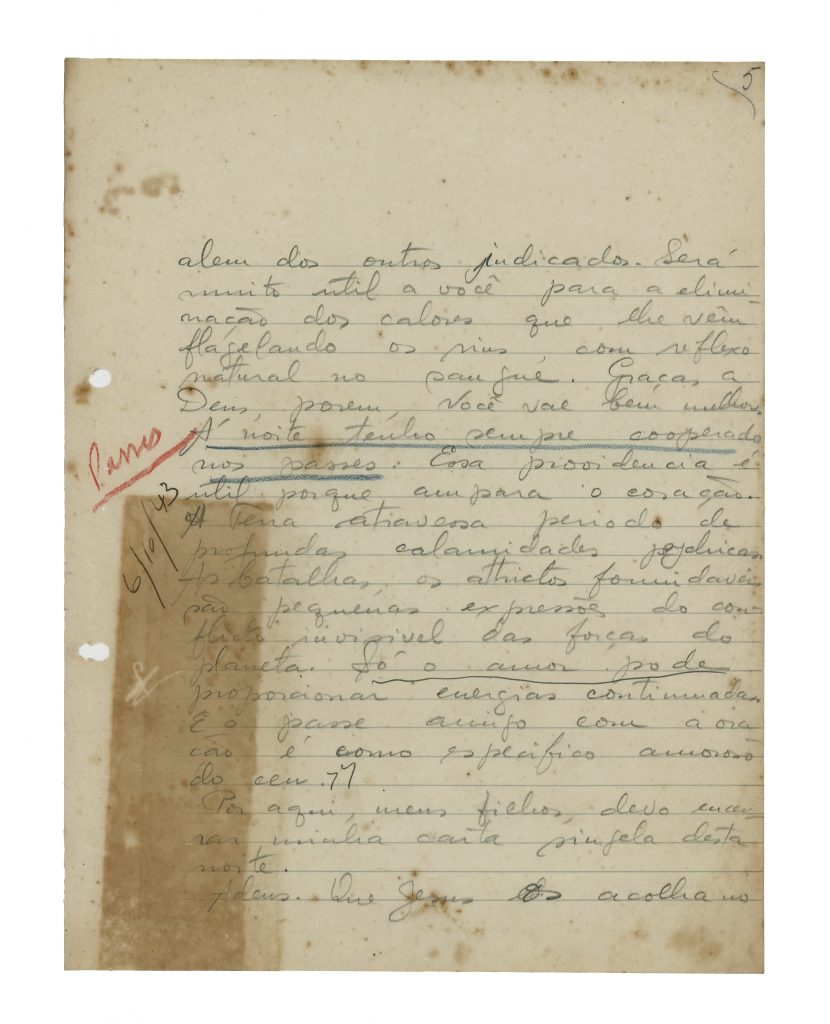 5
alem dos outros indicados. Será
muito util a você para a elimi-
nação dos calores que lhe vêm
flagelando os rins, com reflexo
natural no sangue. Graças a
Deus, porem, você vae bem melhor.
Á noite tenho sempre cooperado
nos passes. Essa providencia é
util porque ampara o coração.
A Terra atravessa periodo de
profundas calamidades psychicas.
As batalhas, os attrictos formidaveis
são pequenas expressões do con-
flicto invisivel das forças do
planeta. Só o amor pode
proporcionar energias continuadas.
E o passe amigo com a ora
ção é como especifico amoroso
do ceu."
Por aqui, meus filhos, devo encer-
rar minha carta singela desta
noite.
Adeus. Que Jesus os acolha no
Passes
6/10/43